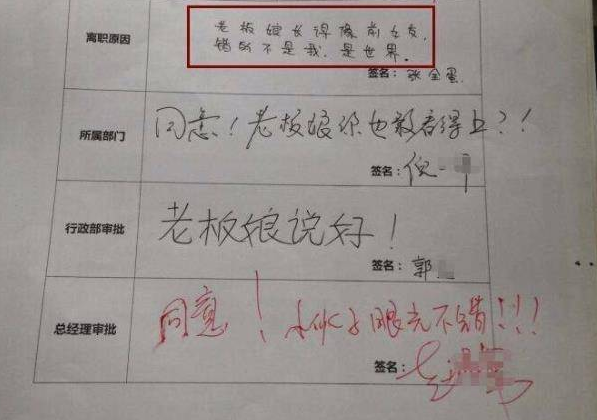 离职原因
老板娘长得像前女友,
错的不是我,是世界。
签名：张全蛋
所属部门
同意！老板娘你也敢看得上？！
签名：倪
行政部审批
老板娘说好！
签名：郭
总经理审批
同意！小伙子眼光不错！！！
签名：